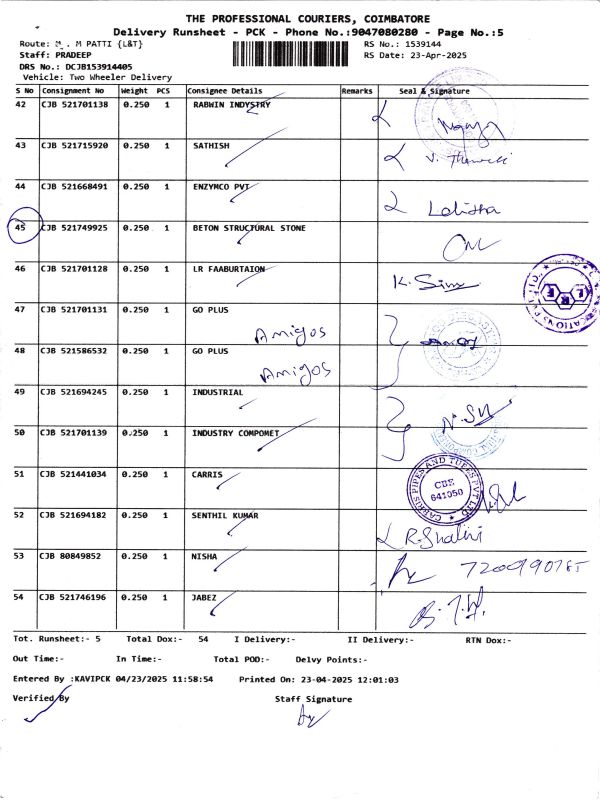 THE PROFESSIONAL COURIERS, COIMBATORE
Delivery Runsheet - PCK - Phone No.:9047080280 - Page No.:5
Route: M . M PATTI {L&T}
RS No.: 1539144
Staff: PRADEEP
RS Date: 23-Apr-2025
DRS No.: DCJB153914405
Vehicle: Two Wheeler Delivery
S No Consignment No Weight PCS Consignee Details Remarks Seal & Signature
42 CJB 521701138 0.250 1 RABWIN INDYSTRY
43 CJB 521715920 0.250 1 SATHISH
44 CJB 521668491 0.250 1 ENZYMCO PVT
Lalisha
45 CJB 521749925 0.250 1 BETON STRUCTURAL STONE
46 CJB 521701128 0.250 1 LR FAABURTAION
K. Simy
47 CJB 521701131 0.250 1 GO PLUS
Amigos
48 CJB 521586532 0.250 1 GO PLUS
Amigos
49 CJB 521694245 0.250 1 INDUSTRIAL
50 CJB 521701139 0.250 1 INDUSTRY COMPOMET
51 CJB 521441034 0.250 1 CARRIS
CARRIS PIPES AND TUBES PVT LTD
CBE
641050
52 CJB 521694182 0.250 1 SENTHIL KUMAR
R. Shalini
53 CJB 80849852 0.250 1 NISHA
54 CJB 521746196 0.250 1 JABEZ
Tot. Runsheet:- 5 Total Dox:- 54 I Delivery:- II Delivery:- RTN Dox:-
Out Time:- In Time:- Total POD:- Delvy Points:-
Entered By :KAVIPCK 04/23/2025 11:58:54 Printed On: 23-04-2025 12:01:03
Verified By Staff Signature